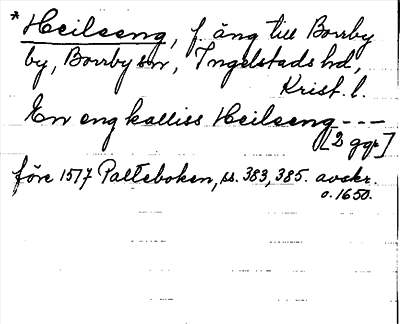 * Heilseng, f. äng till Borrby
by, Borrby sn, Ingelstads hd,
Krist. l.
En eng kalliss Heilseng - - -
[2 ggr]
före 1517 Palteboken, ss. 383, 385. avskr.
o. 1650.